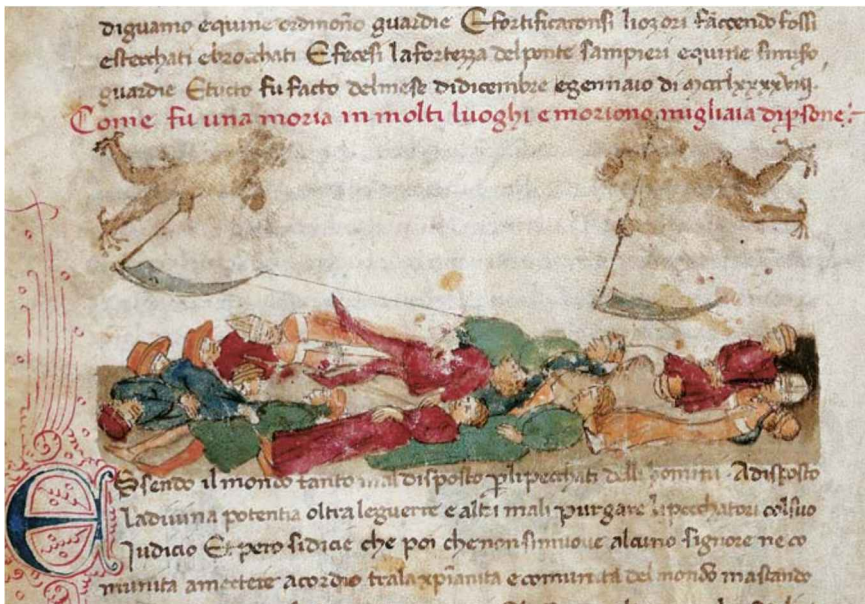 diguamo equine ordinono guardie E fortificaronsi li ozori faccendo fossi
estecchati ebrocchati E fecesi lafortezza delponte sampieri equine simiso
guardie E tucto fu facto delmese didicembre egennaio di mccclxxxxviij.
Come fu una moria in molti luoghi e moriono migliaia dipsone:
Essendo il mondo tanto mal disposto p lipecchati delli homini. A disposto
Ladivina potentia oltra leguerre e altri mali purgare li pecchatori colsuo
Judicio Et pero sidicie che poi chenonsimuove alcuno signore ne co
munita amectere acordio trala xpianita e comunita del mondo mastando